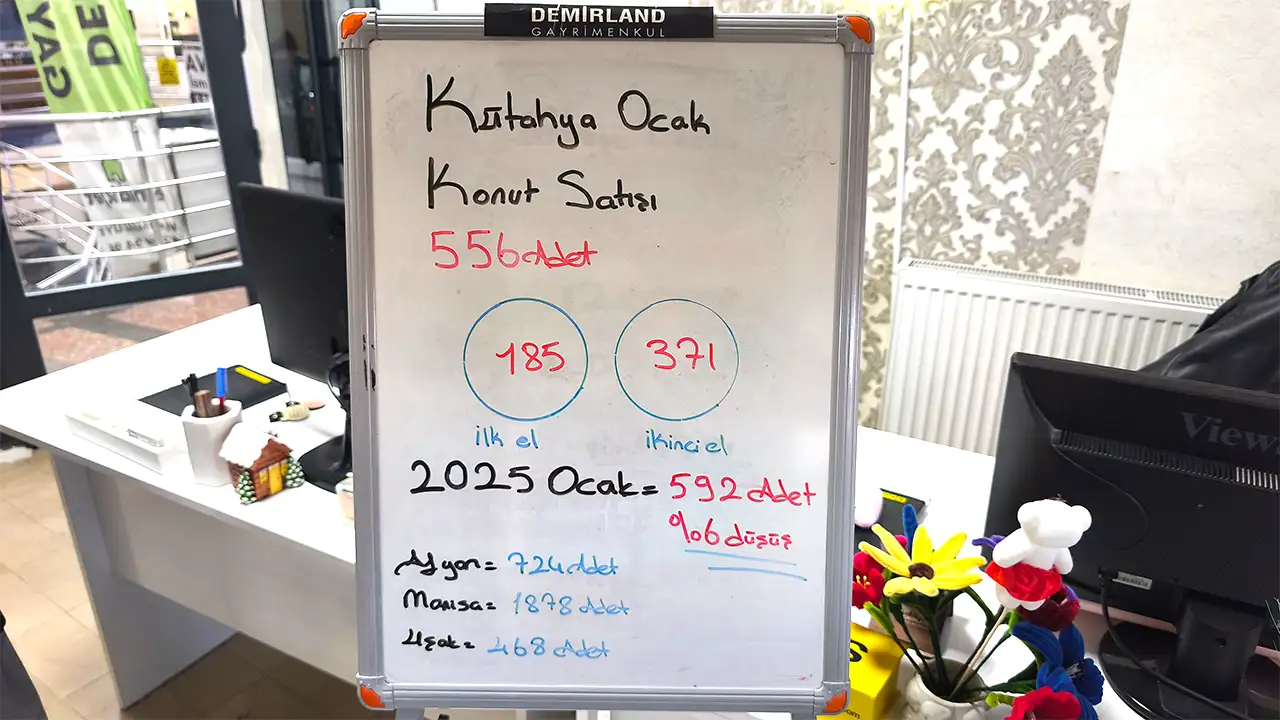 DEMİRLAND
GAYRİMENKUL
Kütahya Ocak
Konut Satışı
556 Adet
185
371
ilk el
ikinci el
2025 Ocak = 592 Adet
%6 düşüş
Afyon = 724 Adet
Manisa = 1878 Adet
Uşak = 468 Adet
DE
GAY
View